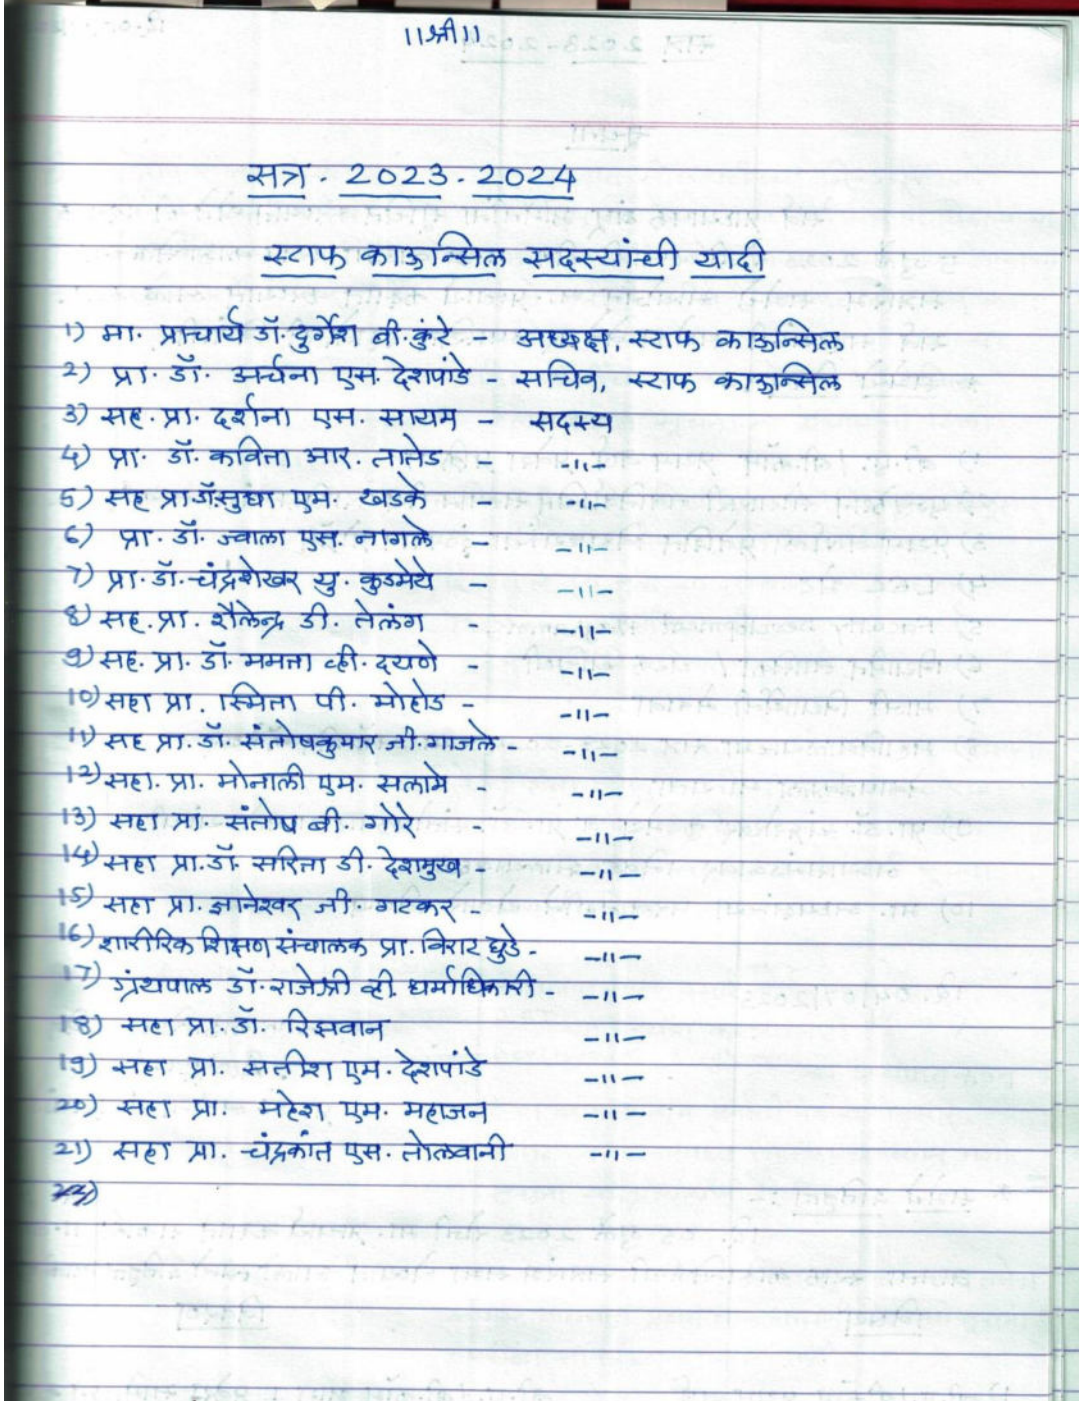 ।।श्री।।
सत्र. 2023-2024
स्टाफ काऊन्सिल सदस्यांची यादी
1) मा. प्राचार्य डॉ. दुर्गेश बी. कुंटे - अध्यक्ष, स्टाफ काऊन्सिल
2) प्रा. डॉ. अर्चना एस. देशपांडे - सचिव, स्टाफ काऊन्सिल
3) सह. प्रा. दर्शना एस. सायम - सदस्य
4) प्रा. डॉ. कविता आर. तातेड - -॥-
5) सह प्रा. डॉ. सुधा एम. खडके - -॥-
6) प्रा. डॉ. ज्वाला एस. नागले - -॥-
7) प्रा. डॉ. चंद्रशेखर यु. कुडमेथे - -॥-
8) सह. प्रा. शैलेन्द्र डी. तेलंग - -॥-
9) सह. प्रा. डॉ. ममता व्ही. दयणे - -॥-
10) सहा प्रा. स्मिता पी. मोहोड - -॥-
11) सह प्रा. डॉ. संतोषकुमार जी. गाजले - -॥-
12) सहा. प्रा. मोनाली एम. सलामे - -॥-
13) सहा प्रा. संतोष बी. गोरे - -॥-
14) सहा प्रा. डॉ. सरिता डी. देशमुख - -॥-
15) सहा प्रा. ज्ञानेश्वर जी. गटकर - -॥-
16) शारीरिक शिक्षण संचालक प्रा. विराट घुडे - -॥-
17) ग्रंथपाल डॉ. राजेश्री व्ही. धर्माधिकारी - -॥-
18) सहा प्रा. डॉ. रिझवान -॥-
19) सहा प्रा. सतीश एम. देशपांडे -॥-
20) सहा प्रा. महेश एम. महाजन -॥-
21) सहा प्रा. चंद्रकांत एस. तोलवानी -॥-